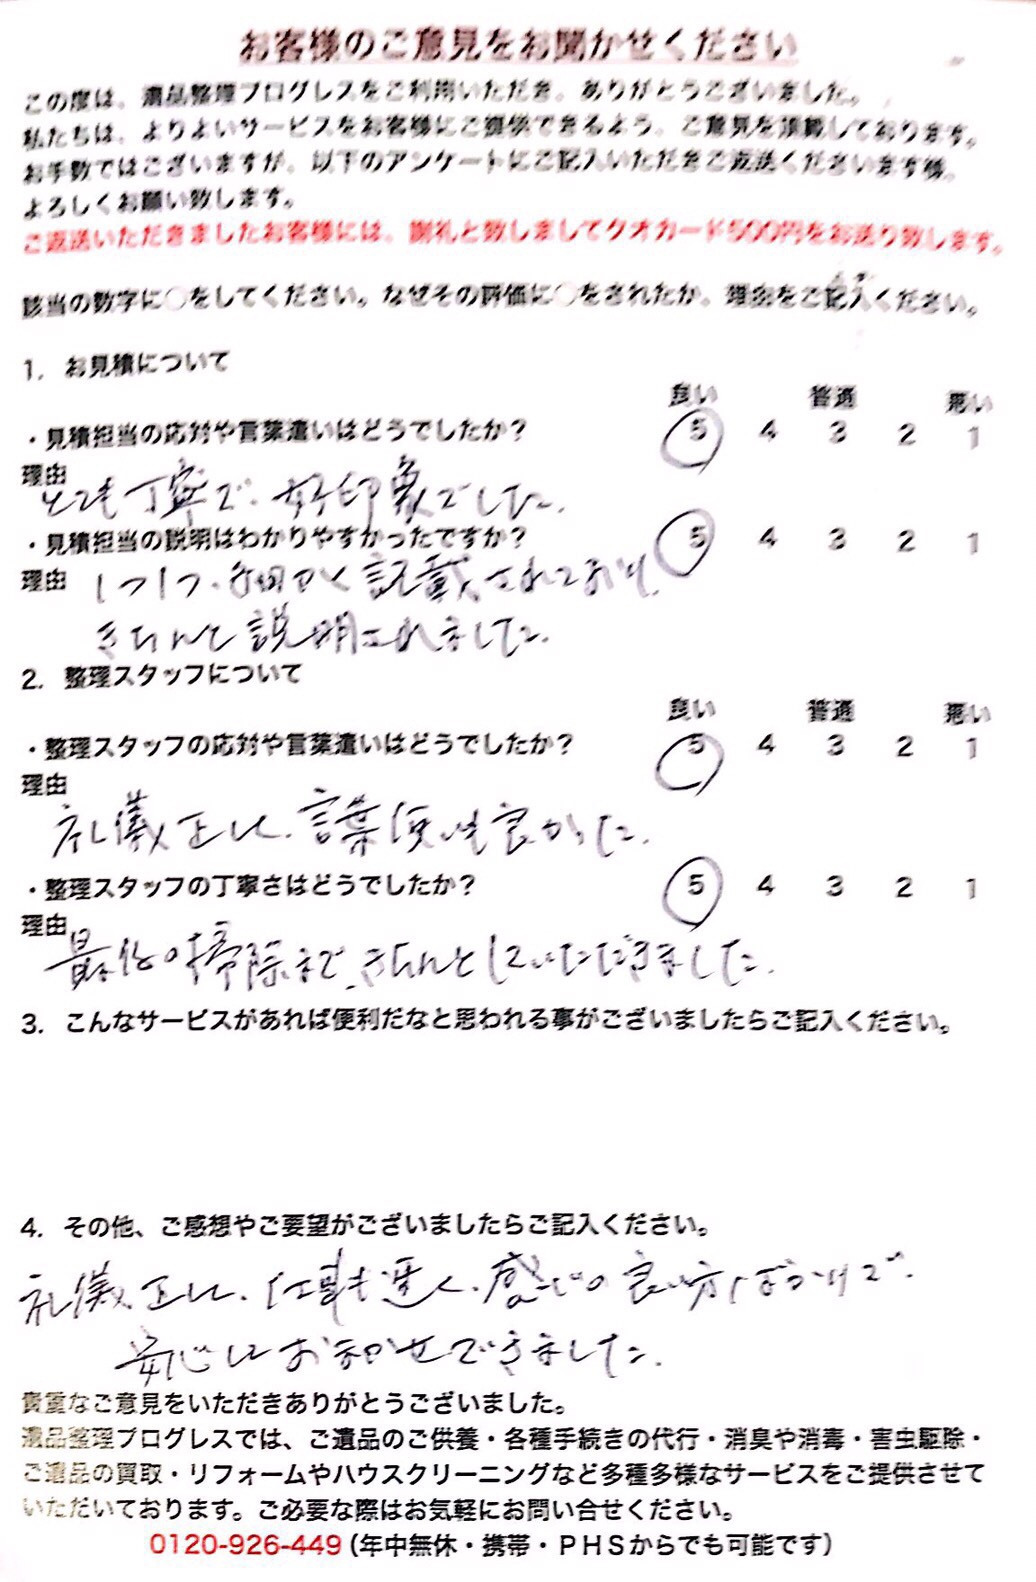 お客様のご意見をお聞かせください
この度は、遺品整理プログレスをご利用いただき、ありがとうございました。
私たちは、よりよいサービスをお客様にご提供できるよう、ご意見を頂戴しております。
お手数ではございますが、以下のアンケートにご記入いただきご返送くださいます様、
よろしくお願い致します。
ご返送いただきましたお客様には、謝礼と致しましてクオカード500円をお送り致します。
該当の数字に○をしてください。なぜその評価に○をされたか、理由をご記入ください。
1. お見積について
良い 普通 悪い
・見積担当の応対や言葉遣いはどうでしたか? 5 4 3 2 1
理由
とても丁寧で、好印象でした。
・見積担当の説明はわかりやすかったですか? 5 4 3 2 1
理由 1つ1つ、細かく記載されており、
きちんと説明されました。
2. 整理スタッフについて
良い 普通 悪い
・整理スタッフの応対や言葉遣いはどうでしたか? 5 4 3 2 1
理由
礼儀正しく、言葉使いも良かった。
・整理スタッフの丁寧さはどうでしたか? 5 4 3 2 1
理由
最後の掃除まで、きちんとしていただきました。
3. こんなサービスがあれば便利だなと思われる事がございましたらご記入ください。
4. その他、ご感想やご要望がございましたらご記入ください。
礼儀正しく、仕事も速く、感じの良い方ばかりで、
安心しておまかせできました。
貴重なご意見をいただきありがとうございました。
遺品整理プログレスでは、ご遺品のご供養・各種手続きの代行・消臭や消毒・害虫駆除・
ご遺品の買取・リフォームやハウスクリーニングなど多種多様なサービスをご提供させて
いただいております。ご必要な際はお気軽にお問い合せください。
0120-926-449(年中無休・携帯・PHSからでも可能です)